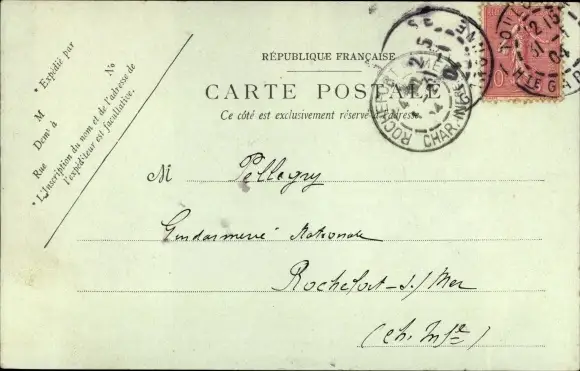 * Expédié par
No
M
Demt à
Rue
* L'inscription du nom et de l'adresse de
l'expéditeur est facultative.
RÉPUBLIQUE FRANÇAISE
CARTE POSTALE
Ce côté est exclusivement réservé à l'adresse.
ROCHEFORT MER
CHAR. INFRE
04
M Pellegry
Gendarmerie Nationale
Rochefort-s/Mer
(Ch. Infre)